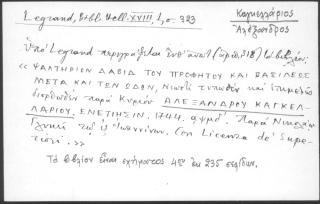 Legrand, Bibl. Hell. XVIII, 1, σ. 323
Καγκελλάριος
Ἀλέξανδρος
Ὑπὸ Legrand περιγράφεται ὑπ' ἀριθ. 318
« ΨΑΛΤΗΡΙΟΝ ΔΑΒΙΔ ΤΟΥ ΠΡΟΦΗΤΟΥ ΚΑΙ ΒΑΣΙΛΕΩΣ
ΜΕΤΑ ΚΑΙ ΤΩΝ ΩΔΩΝ, Νεωστὶ τυπωθὲν καὶ ἐπιμελῶς
διορθωθὲν παρὰ Κυρίου ΑΛΕΞΑΝΔΡΟΥ ΚΑΓΚΕΛ-
ΛΑΡΙΟΥ. ΕΝΕΤΙΗΣΙΝ, 1744. αψμδʹ. Παρὰ Νικολάῳ
Γλυκεῖ τῷ ἐξ Ἰωαννίνων. Con Licenza de' Supe-
riori. »
Τὸ βιβλίον εἶναι σχήματος 4ον ἐκ 235 σελίδων.